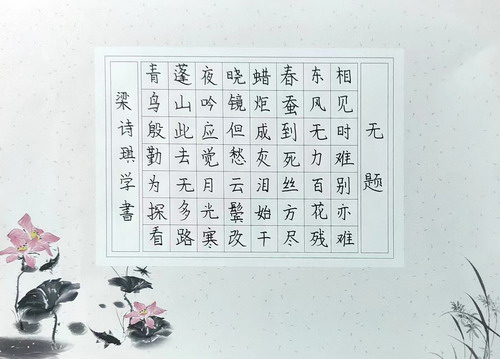 无题
相见时难别亦难
东风无力百花残
春蚕到死丝方尽
蜡炬成灰泪始干
晓镜但愁云鬓改
夜吟应觉月光寒
蓬山此去无多路
青鸟殷勤为探看
梁诗琪学书